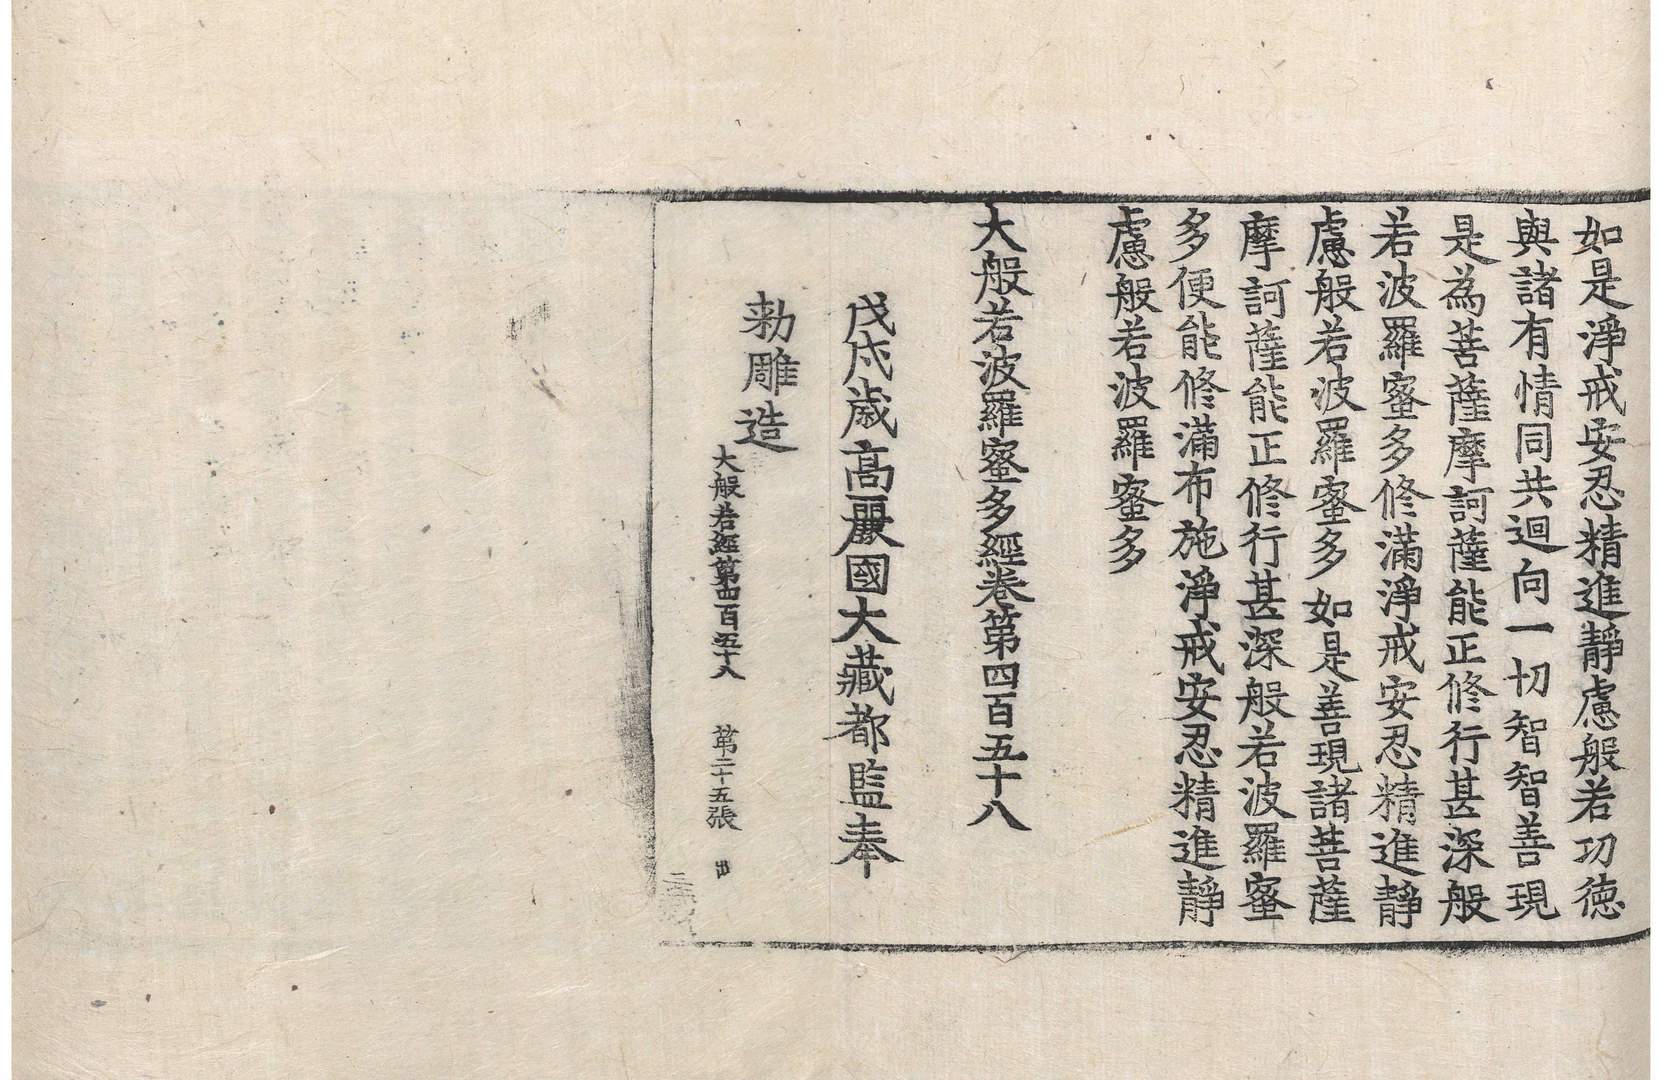 如是淨戒安忍精進靜慮般若功徳
與諸有情同共迴向一切智智善現
是為菩薩摩訶薩能正修行甚深般
若波羅蜜多修滿淨戒安忍精進靜
慮般若波羅蜜多如是善現諸菩薩
摩訶薩能正修行甚深般若波羅蜜
多便能修滿布施淨戒安忍精進靜
慮般若波羅蜜多
大般若波羅蜜多經卷第四百五十八
戊戌歲高麗國大藏都監奉
勑雕造
大般若經第四百五十八 第二十五張 出